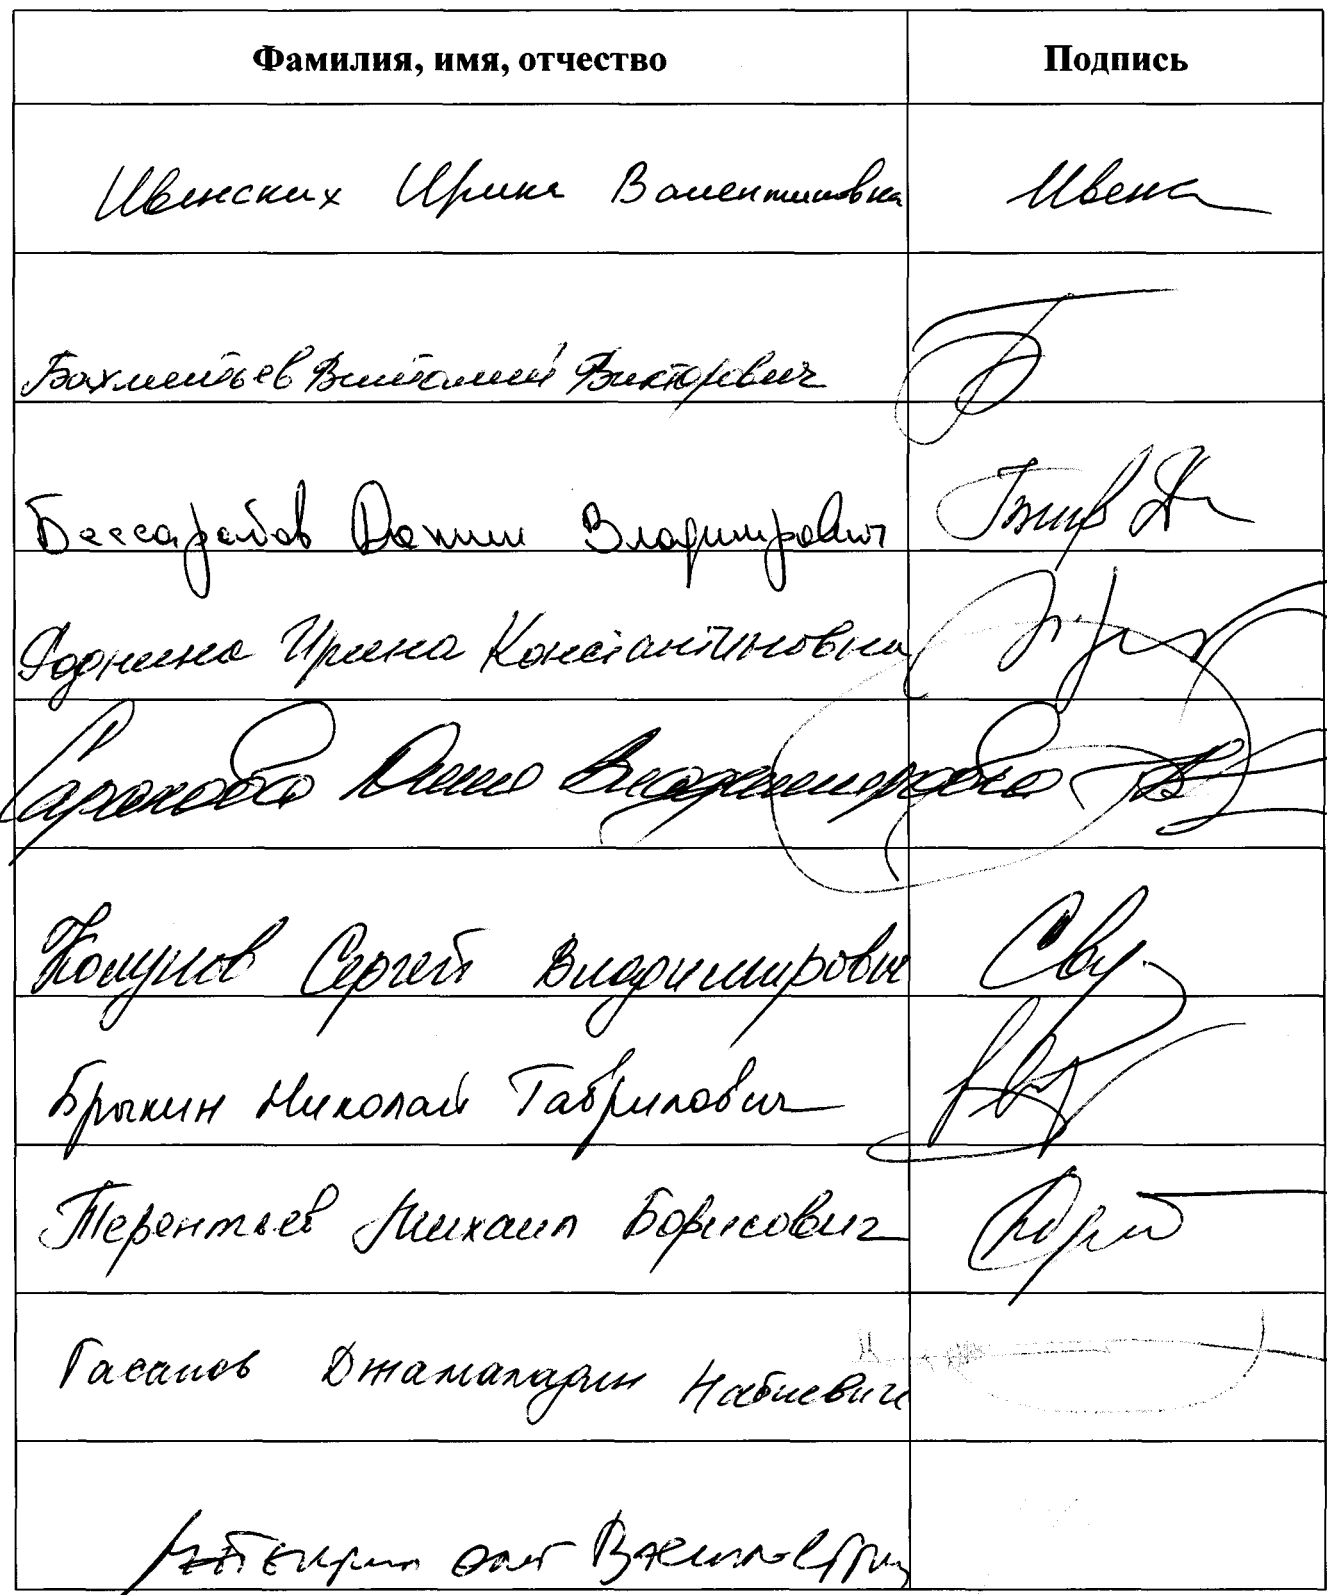 Фамилия, имя, отчество Подпись
Ивенских Ирина Валентиновна Ивенс
Бахметьев Виталий Викторович
Бессарабов Даниил Владимирович
Роднина Ирина Константиновна
Дина Владимировна
Колунов Сергей Владимирович
Брыкин Николай Гаврилович
Терентьев Михаил Борисович
Гасанов Джамаладин Набиевич